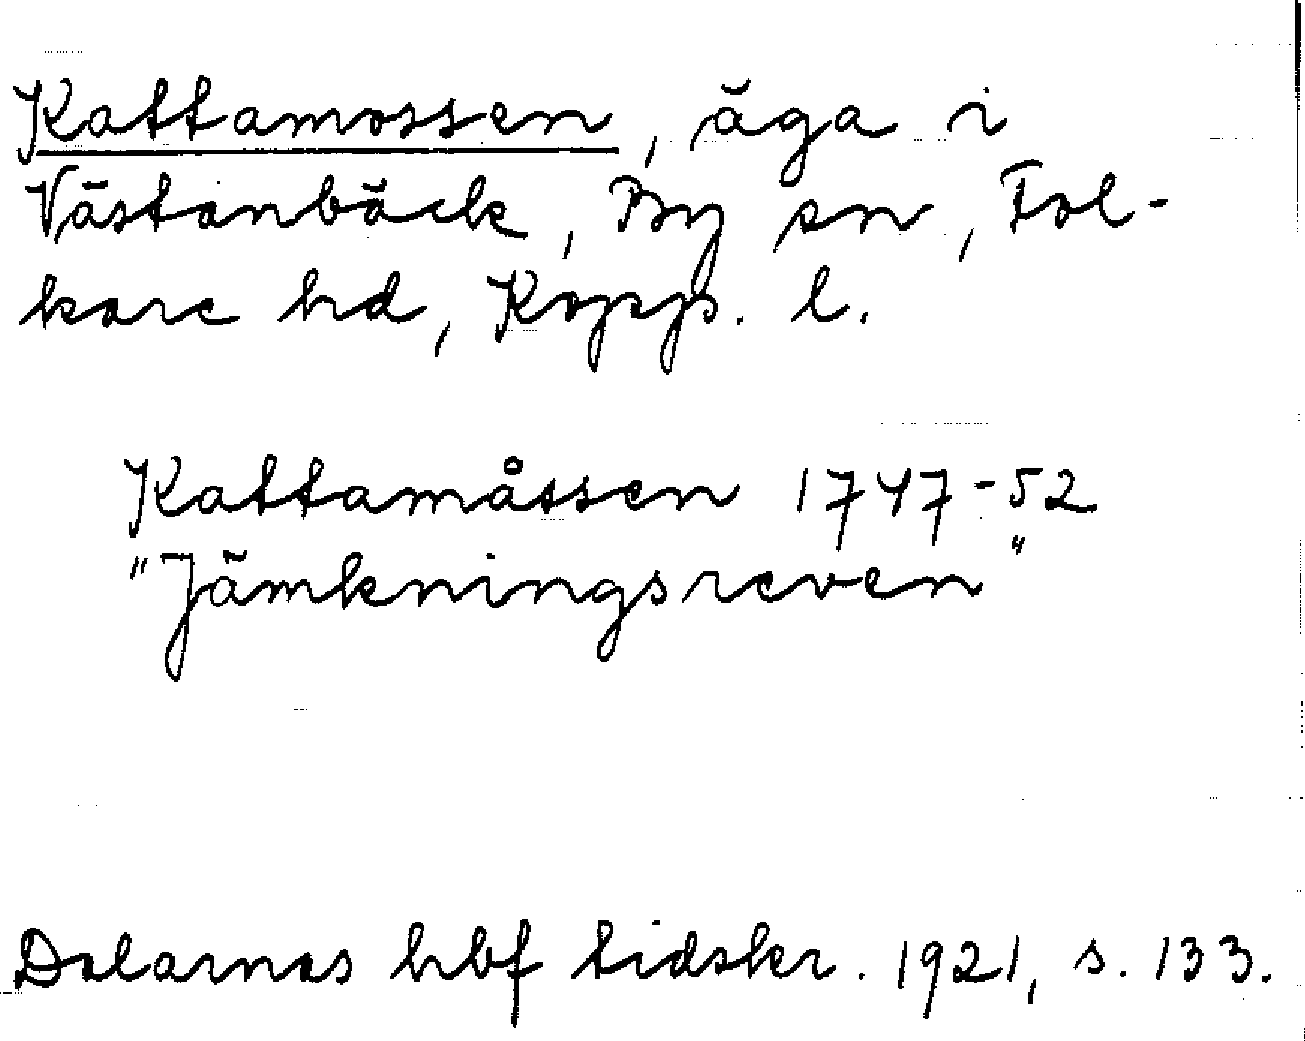 Kattamossen, äga i
Västanbäck, By sn, Fol-
kare hd, Kopp. l.
Kattamåssen 1747-52
"Jämkningsreven"
Dalarnas hbf tidskr. 1921, s. 133.